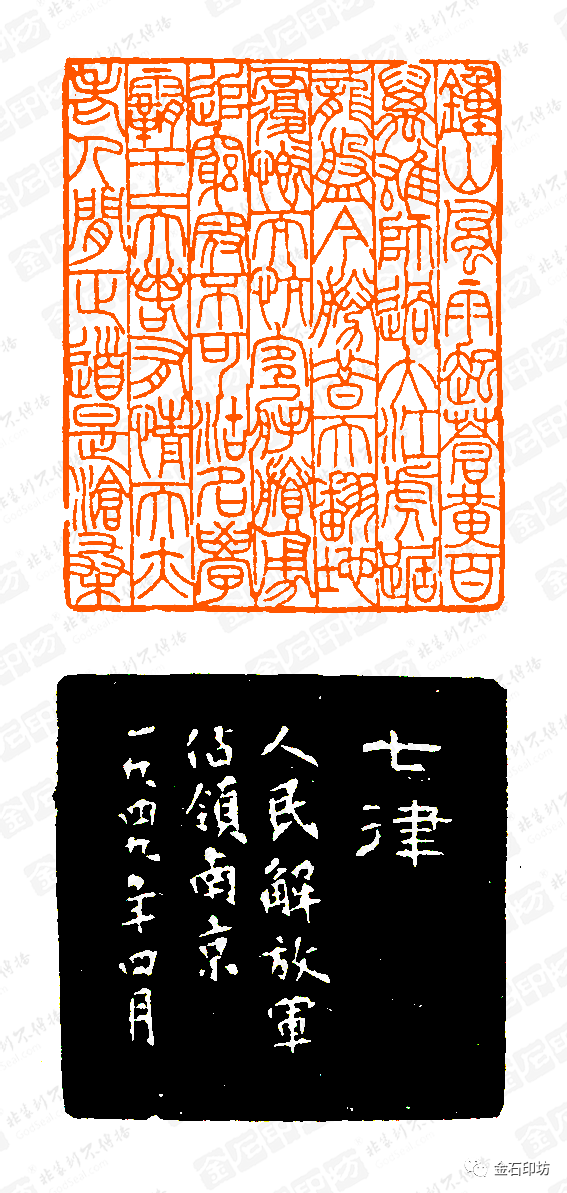 鍾山風雨起蒼黃百
萬雄師過大江虎踞
龍盤今勝昔天翻地
覆慨而慷宜將賸勇
追窮寇不可沽名學
霸王天若有情天亦
老人間正道是滄桑
七律
人民解放軍
佔領南京
一九四九年四月
金石印坊